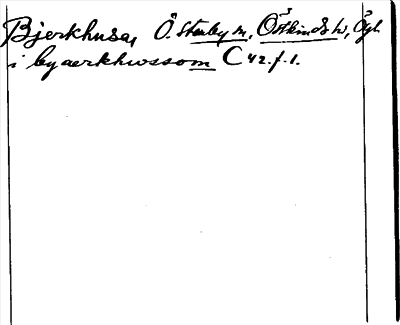 Bjerkhusa, Ö. Stenby sn, Östkinds hd, Ögl.
i byaerkhwssom C 42 f. 1.